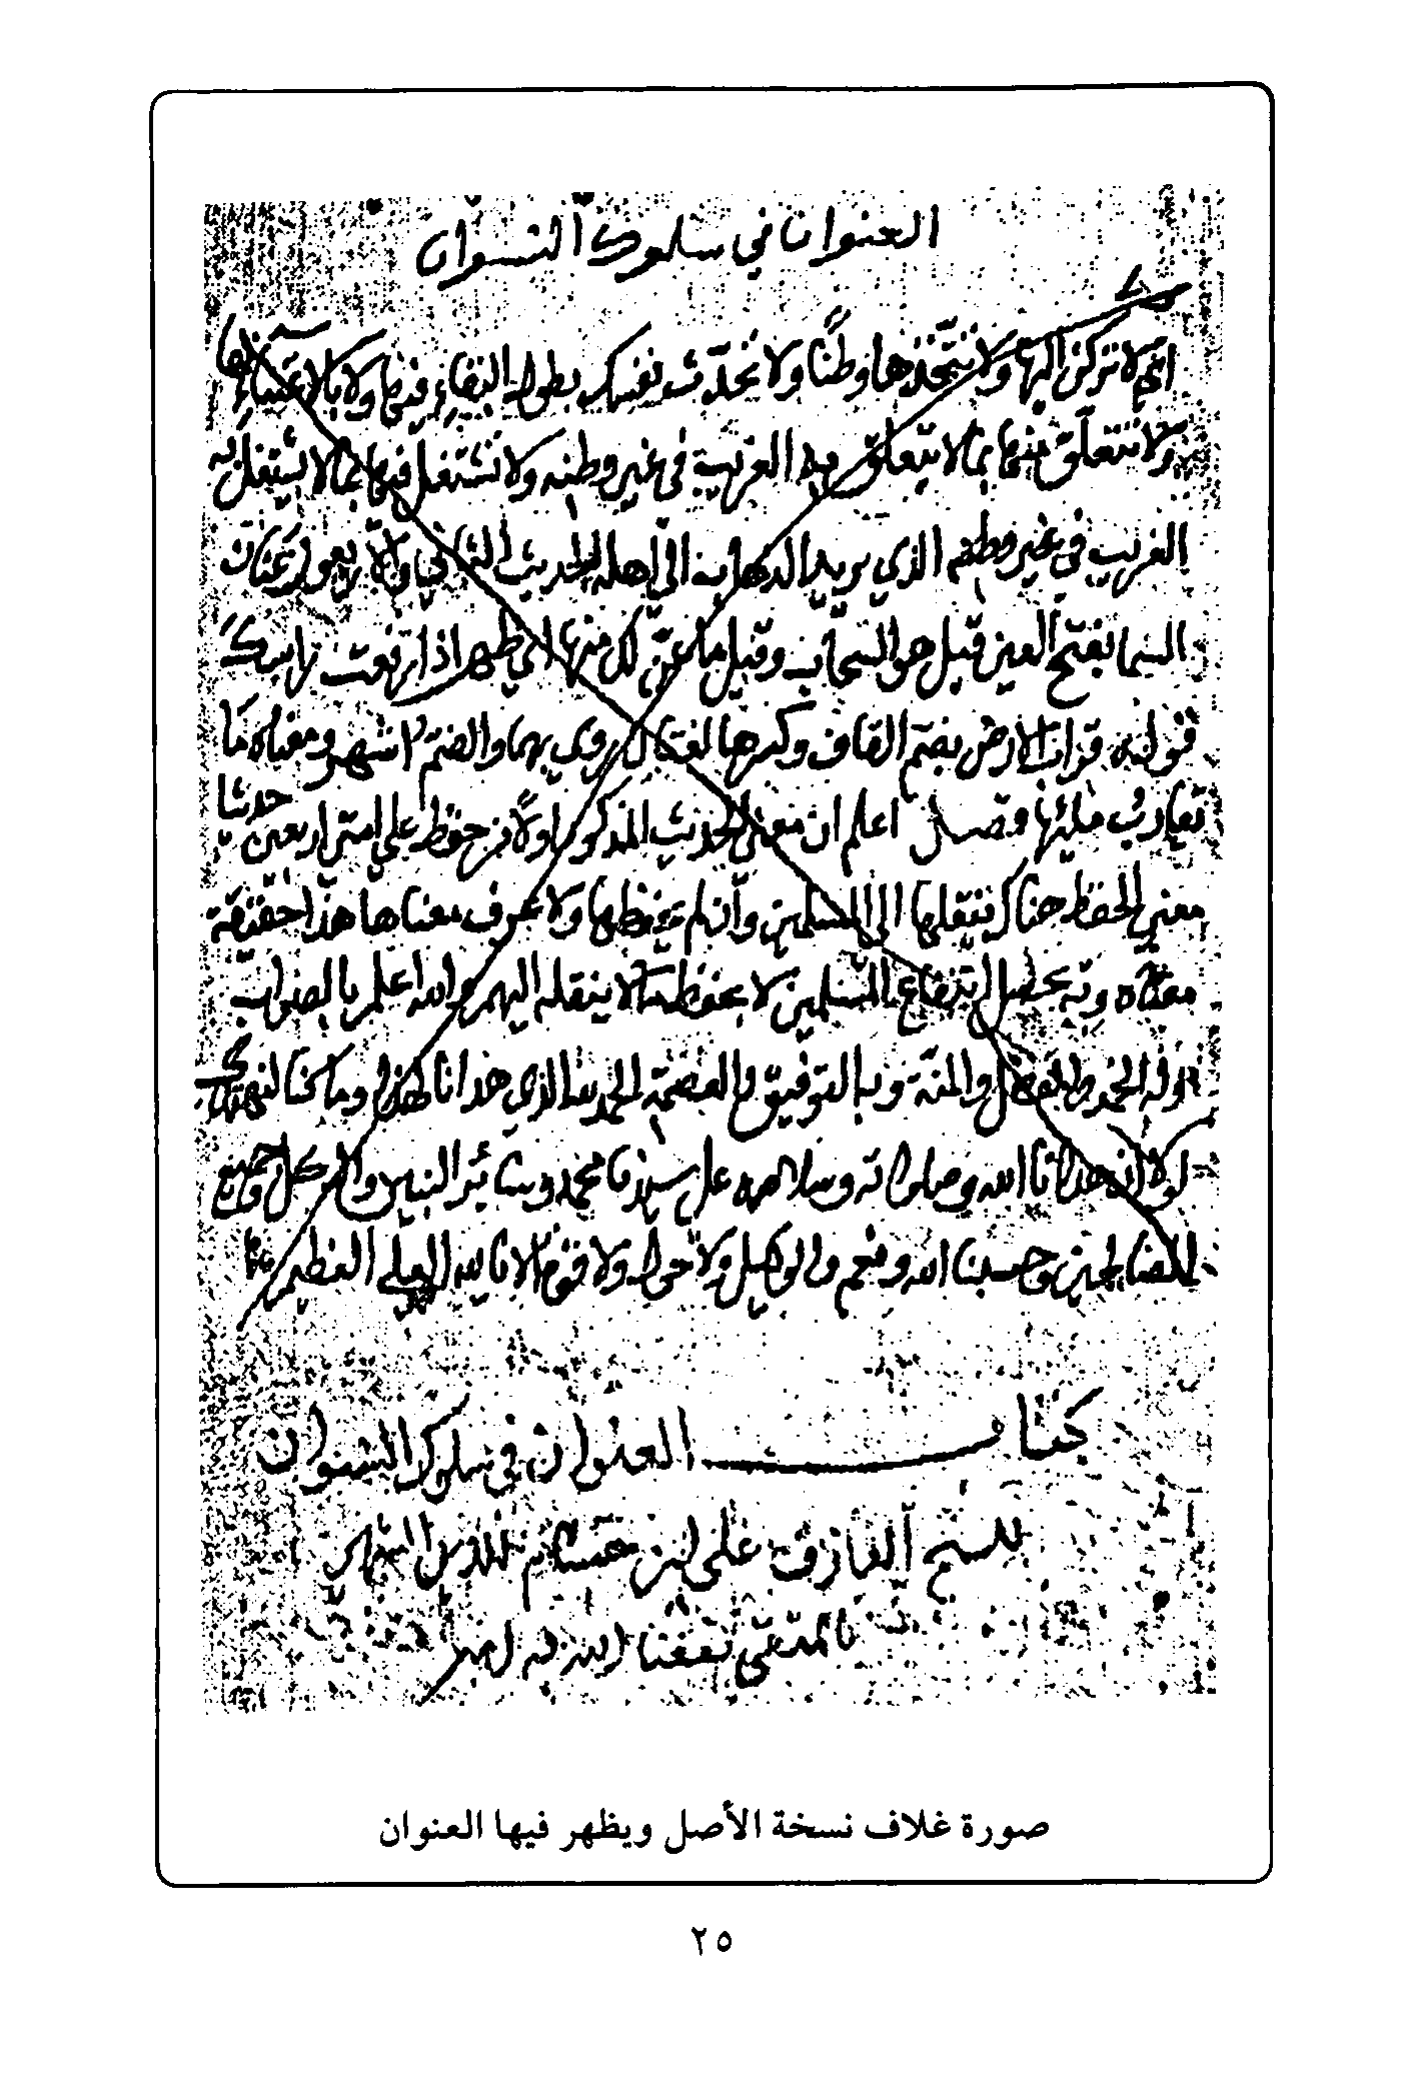 العنوان في سلوك النسوان
اي لا تركن اليها ولا تتخذها وطنًا ولا تحدث نفسك بطول البقاء فيها ولا بالاعتناء بها
ولا تتعلق منها بما لا يتعلق به الغريب في غير وطنه ولا تشتغل فيها بما لا يشتغل به
الغريب في غير وطنه الذي يريد الذهاب منه الى اهله الحديث الثاني والاربعون عنان
السما بفتح العين قيل هو السحاب وقيل ما عن لك منها اي ظهر اذا رفعت راسك
قوله قراب الارض بضم القاف وكسرها لغتان روي بهما والضم اشهر ومعناه ما
يقارب مليها فصل اعلم ان معنى الحديث المذكور اولا من حفظ على امتي اربعين حديثا
معنى الحفظ هنا ان ينقلها الى المسلمين وان لم يحفظها ولا عرف معناها هذا حقيقة
معناه وبه يحصل انتفاع المسلمين لا بحفظ ما لا ينقله اليهم والله اعلم بالصواب
وله الحمد والفضل والمنة وبه التوفيق والعصمة الحمد لله الذي هدانا لهذا وما كنا لنهتدي
لولا ان هدانا الله وصلواته وسلامه على سيدنا محمد وسائر النبيين وال كل وجميع
الصالحين وحسبنا الله ونعم الوكيل ولا حول ولا قوة الا بالله العلي العظيم
كتاب العنوان في سلوك النسوان
للشيخ العارف على ابن حسام الدين الشهير
بالمتقي نفعنا الله به امين
صورة غلاف نسخة الأصل ويظهر فيها العنوان
٢٥